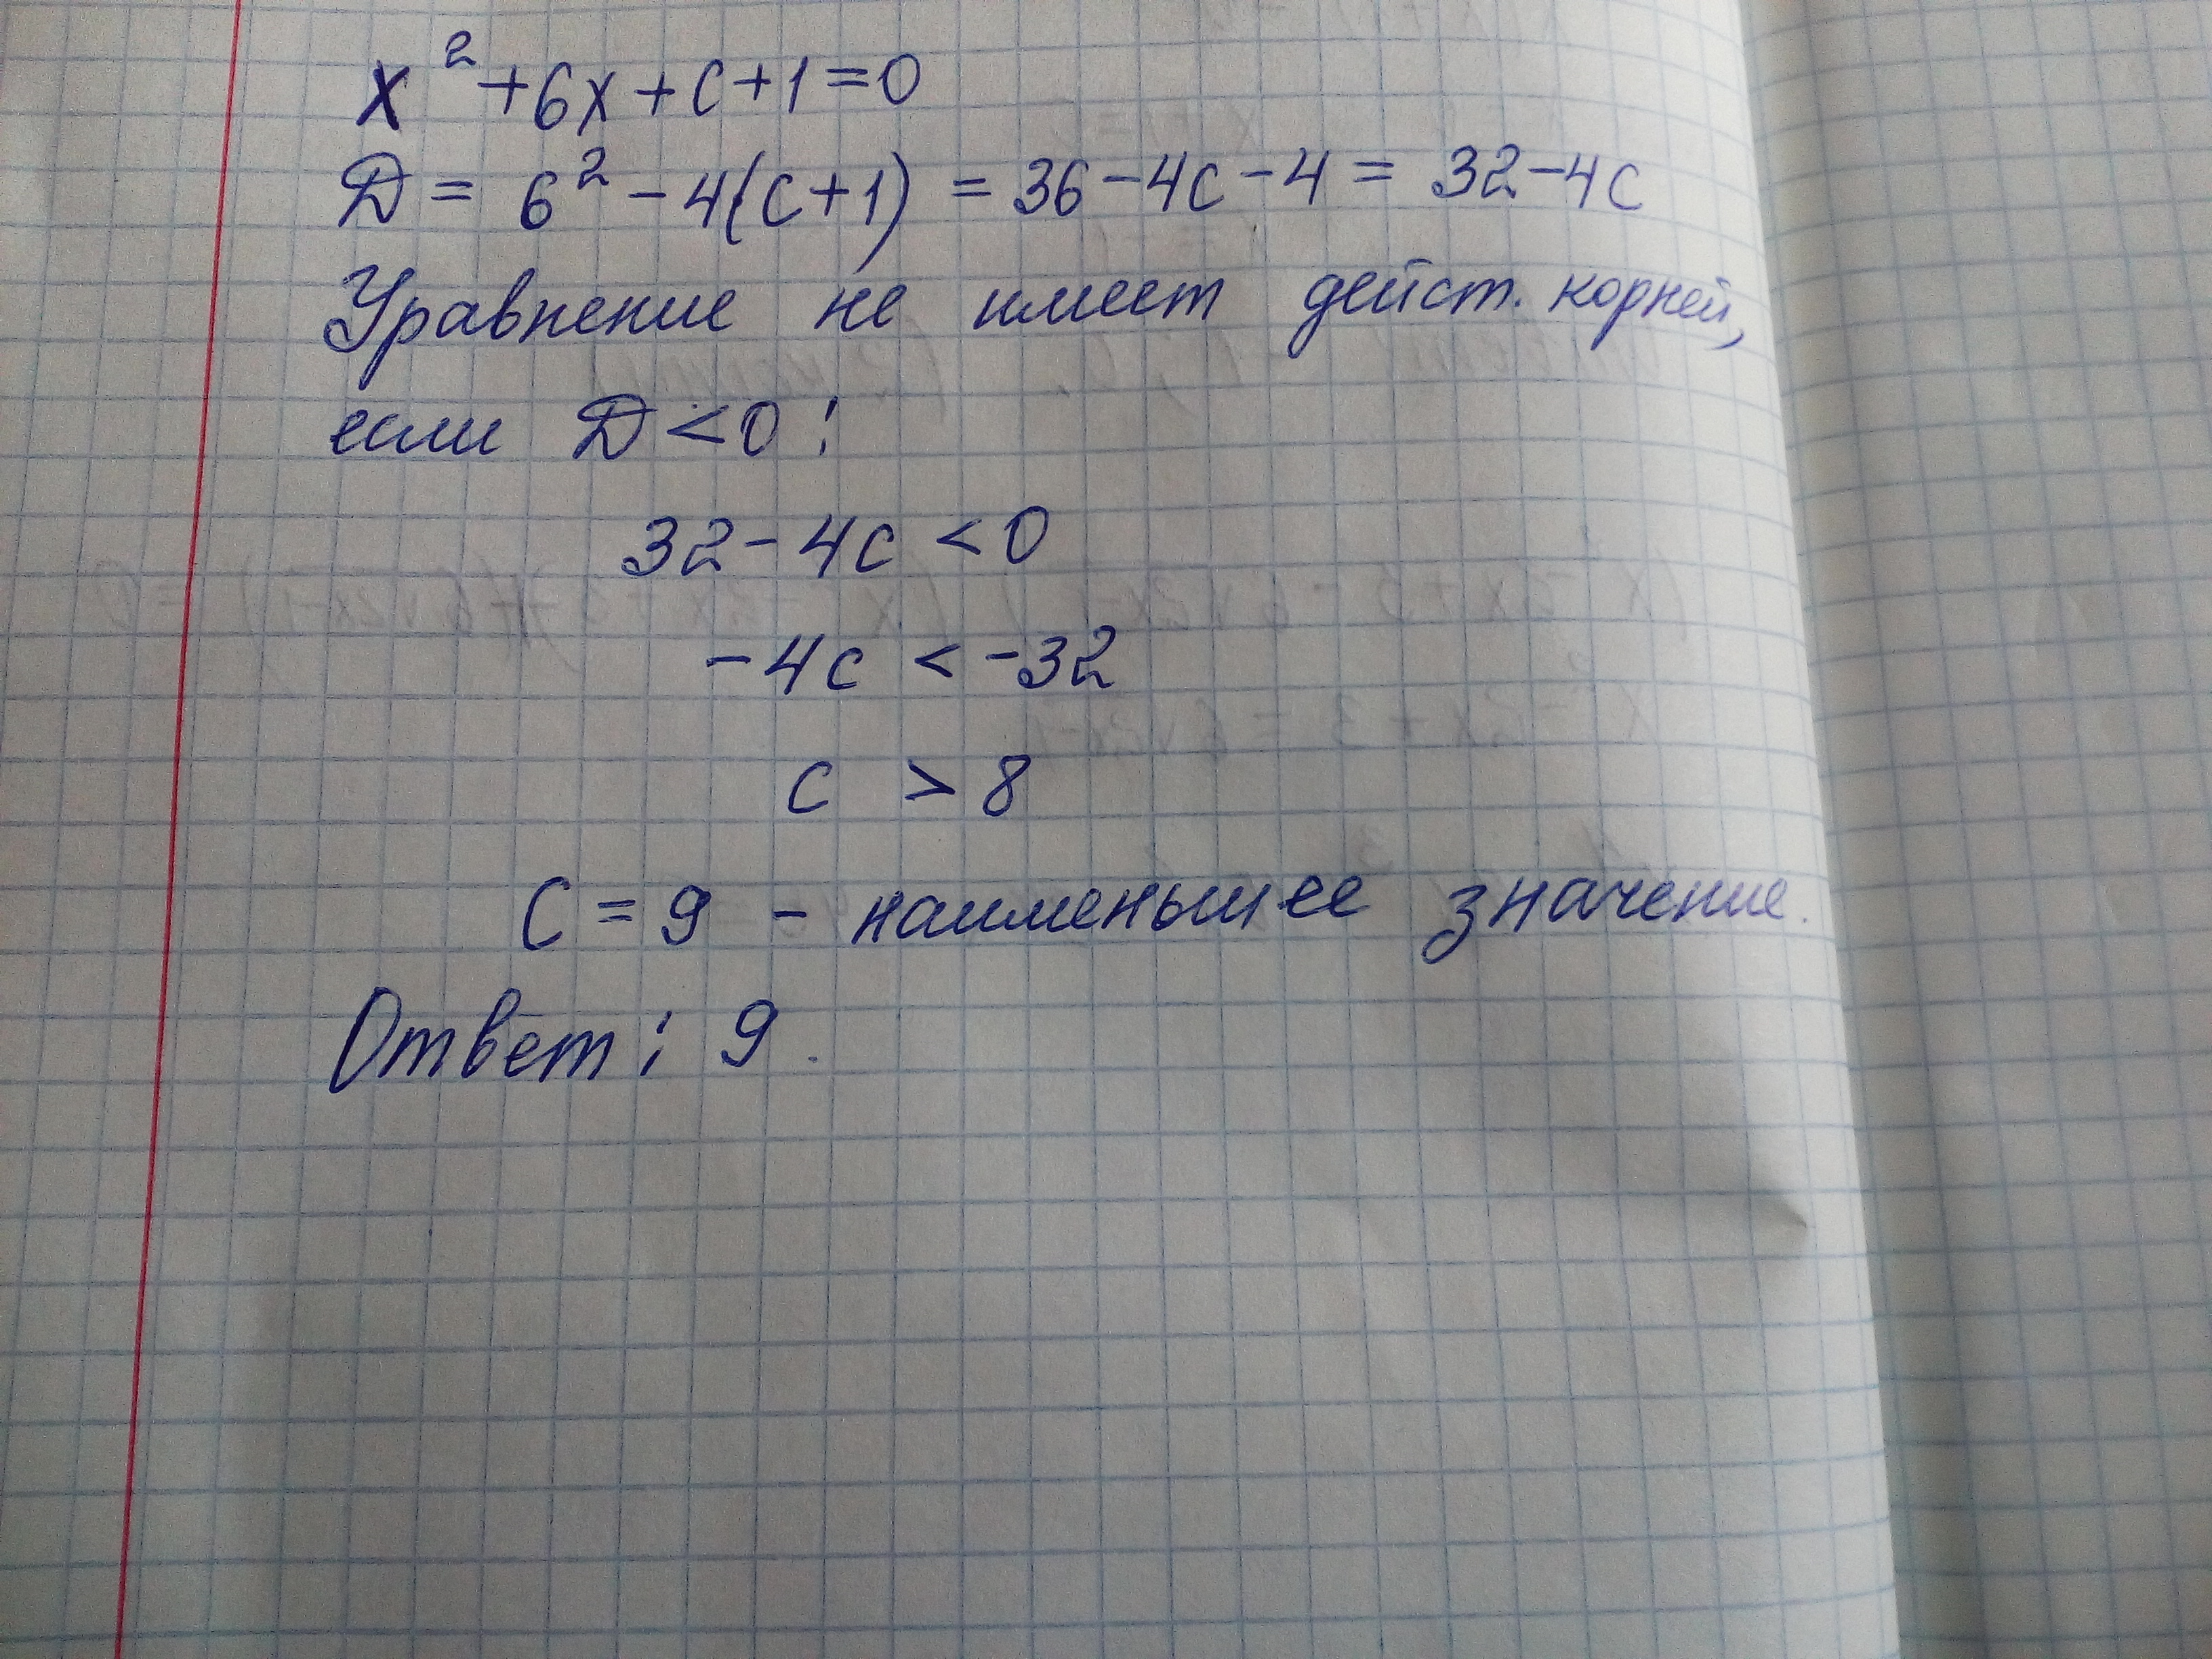 x² + 6x + c + 1 = 0
D = 6² - 4(c + 1) = 36 - 4c - 4 = 32 - 4c
Уравнение не имеет дейст. корней,
если D < 0:
32 - 4c < 0
-4c < -32
c > 8
C = 9 - наименьшее значение.
Ответ: 9.